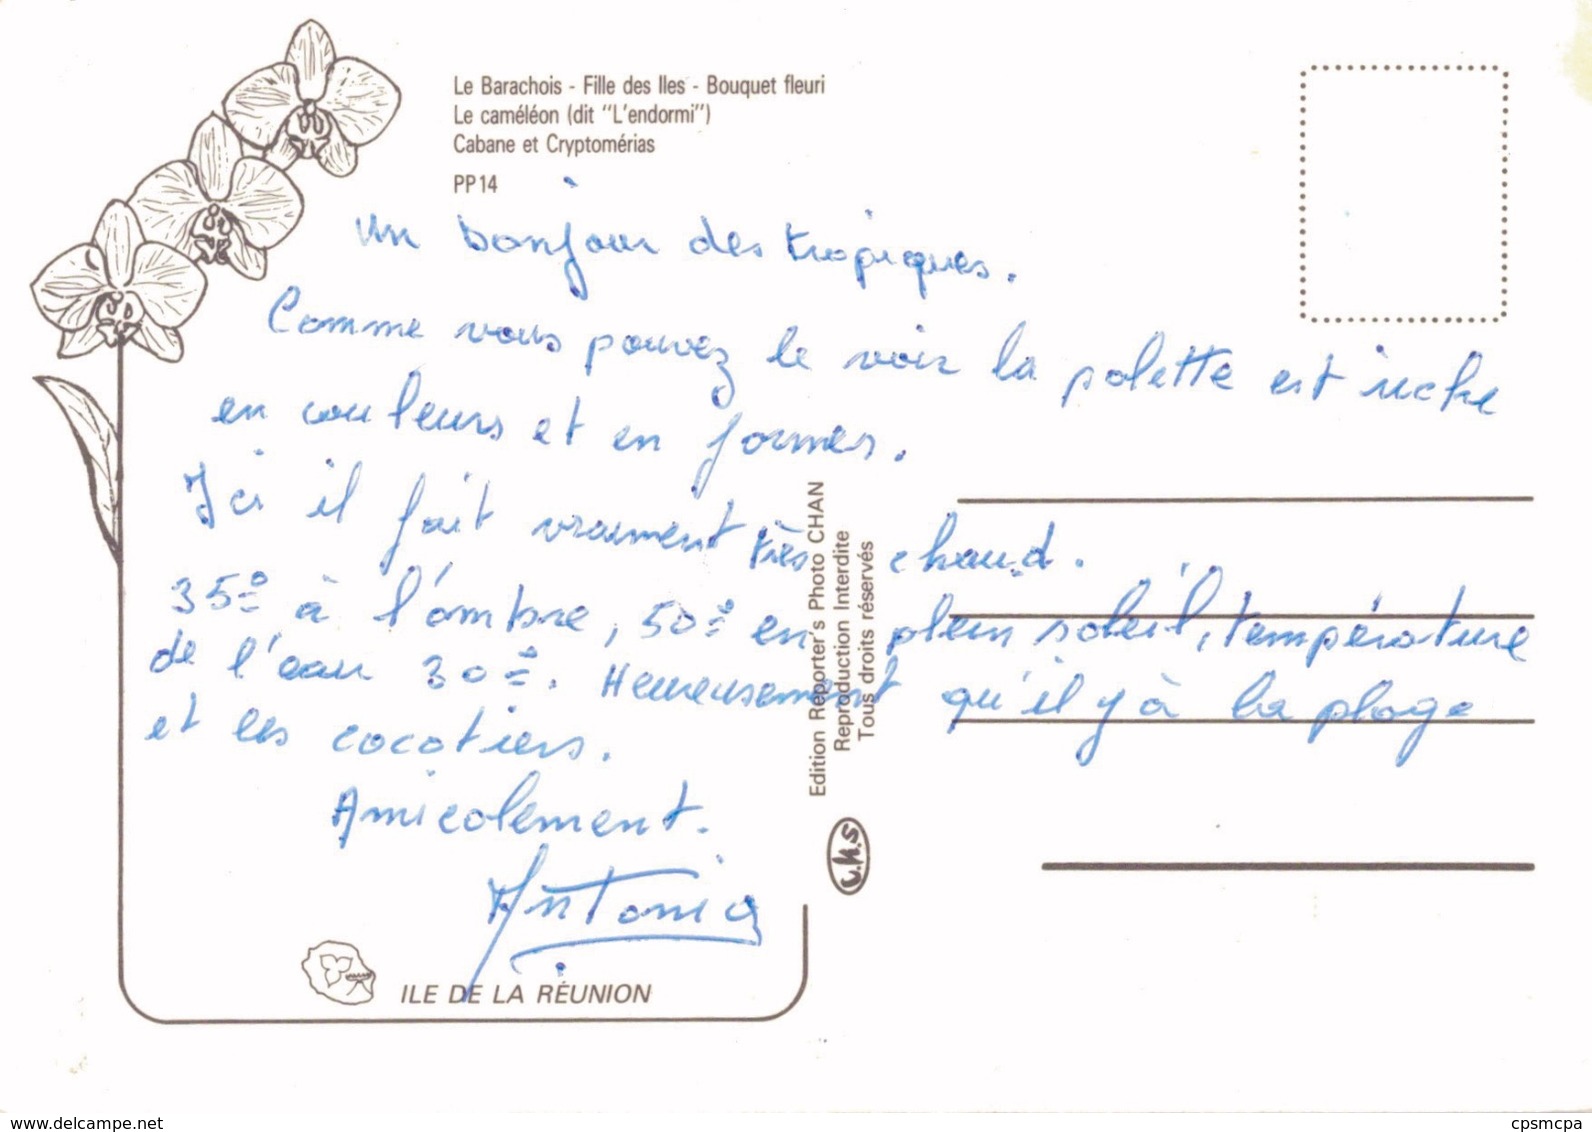 Le Barachois - Fille des Iles - Bouquet fleuri
Le caméléon (dit "L'endormi")
Cabane et Cryptomérias
PP14
Un bonjour des tropiques.
Comme vous pouvez le voir la palette est riche
en couleurs et en formes.
Ici il fait vraiment très chaud.
35° à l'ombre, 50° en plein soleil, température
de l'eau 30°. Heureusement qu'il y a la plage
et les cocotiers.
Amicalement.
Antonia
Edition Reporter's Photo CHAN
Reproduction Interdite
Tous droits réservés
c.h.s
ILE DE LA RÉUNION
www.delcampe.net
cpsmcpa